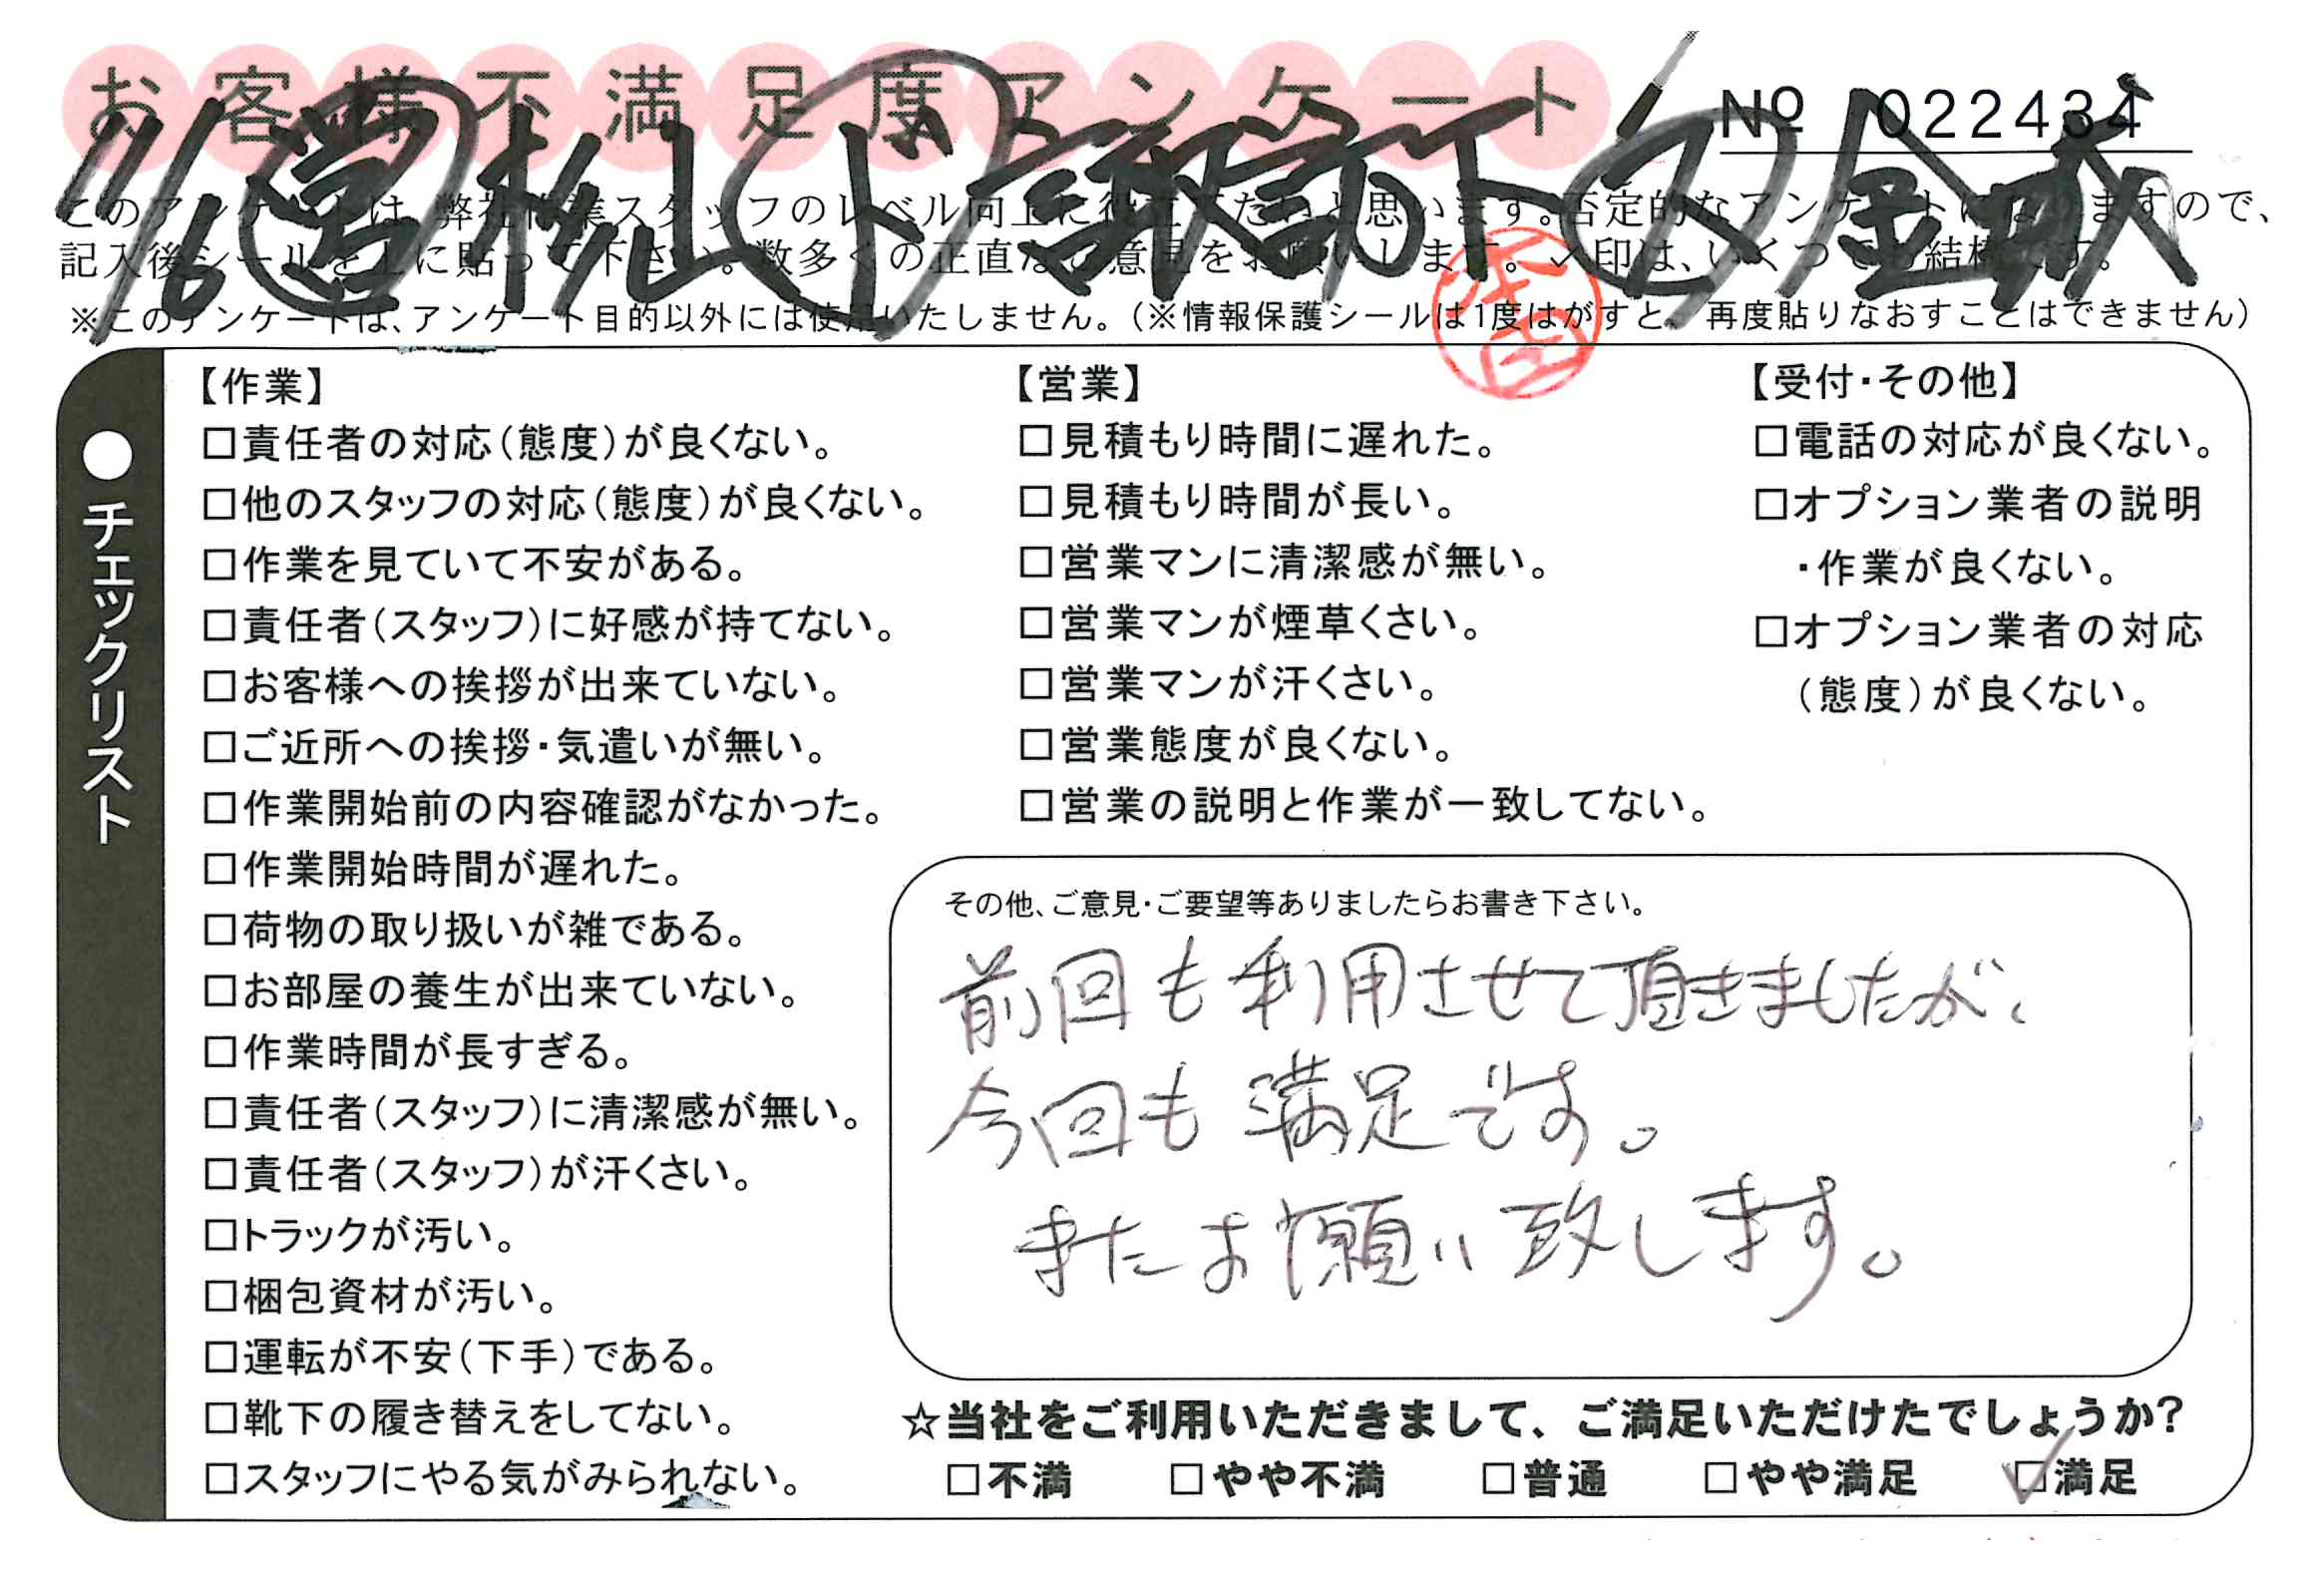 お客様不満足度アンケート
Nº 022434
11/6 営 松山 ト 諏訪下 ス 金城
このアンケートは、弊社作業スタッフのレベル向上に役立てたいと思います。否定的なアンケートになりますので、
記入後シールを上に貼って下さい。数多くの正直なご意見をお願いします。✓印は、いくつでも結構です。
※このアンケートは、アンケート目的以外には使用いたしません。(※情報保護シールは1度はがすと、再度貼りなおすことはできません)
●チェックリスト
【作業】
□責任者の対応(態度)が良くない。
□他のスタッフの対応(態度)が良くない。
□作業を見ていて不安がある。
□責任者(スタッフ)に好感が持てない。
□お客様への挨拶が出来ていない。
□ご近所への挨拶・気遣いが無い。
□作業開始前の内容確認がなかった。
□作業開始時間が遅れた。
□荷物の取り扱いが雑である。
□お部屋の養生が出来ていない。
□作業時間が長すぎる。
□責任者(スタッフ)に清潔感が無い。
□責任者(スタッフ)が汗くさい。
□トラックが汚い。
□梱包資材が汚い。
□運転が不安(下手)である。
□靴下の履き替えをしてない。
□スタッフにやる気がみられない。
【営業】
□見積もり時間に遅れた。
□見積もり時間が長い。
□営業マンに清潔感が無い。
□営業マンが煙草くさい。
□営業マンが汗くさい。
□営業態度が良くない。
□営業の説明と作業が一致してない。
【受付・その他】
□電話の対応が良くない。
□オプション業者の説明
・作業が良くない。
□オプション業者の対応
(態度)が良くない。
その他、ご意見・ご要望等ありましたらお書き下さい。
前回も利用させて頂きましたが、
今回も満足です。
またお願い致します。
☆当社をご利用いただきまして、ご満足いただけたでしょうか?
□不満 □やや不満 □普通 □やや満足 ☑満足